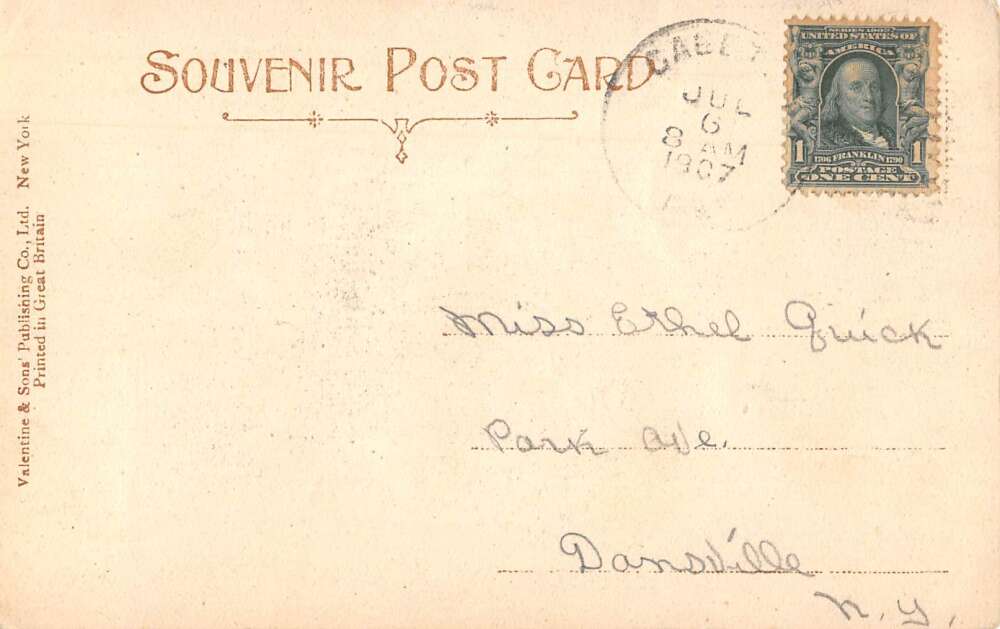 SOUVENIR POST CARD
JUL
6
8 AM
1907
SERIES 1902
UNITED STATES OF
AMERICA
1 1706 FRANKLIN 1790 1
POSTAGE
ONE CENT
Valentine & Sons' Publishing Co., Ltd. New York
Printed in Great Britain
Miss Ethel Quick
Park Ave.
Dansville
N. Y.